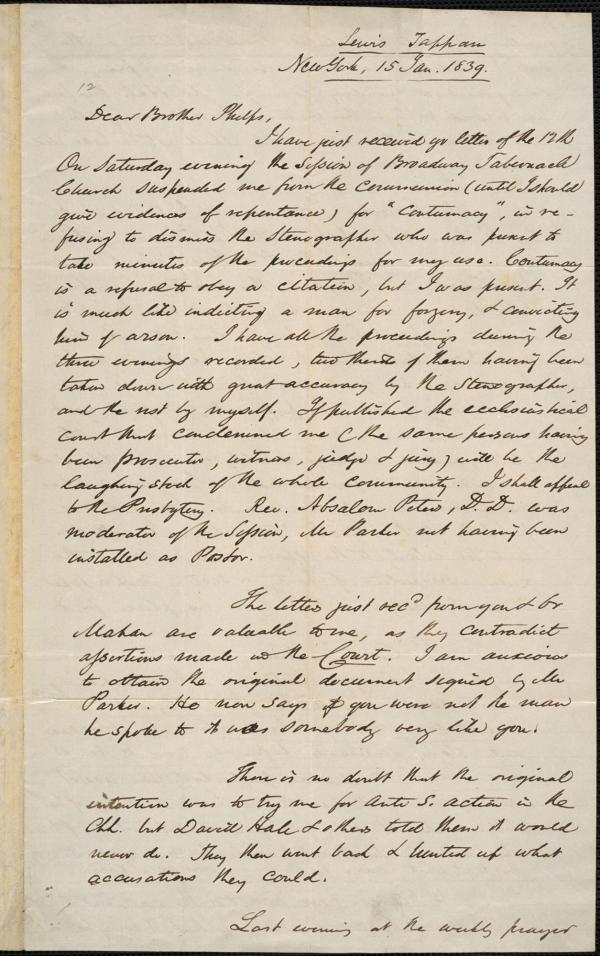 Lewis Tappan
New York, 15 Jan. 1839.
12
Dear Brother Phelps,
I have just received yr letter of the 12th
On Saturday evening the Session of Broadway Tabernacle
Church suspended me from the communion (until I should
give evidences of repentance) for "Contumacy", in re-
fusing to dismiss the Stenographer who was present to
take minutes of the proceedings for my use. Contumacy
is a refusal to obey a citation, but I was present. It
is much like indicting a man for forgery, & convicting
him of arson. I have all the proceedings during the
three evenings recorded, two thirds of them having been
taken down with great accuracy by the Stenographer,
and the rest by myself. If published the ecclesiastical
court that condemned me (the same persons having
been prosecutor, witness, judge & jury) will be the
laughing stock of the whole community. I shall appeal
to the Presbytery. Rev. Absalom Peters, D.D. was
moderator of the Session, Mr Parker not having been
installed as Pastor.
The letters just recd from you & br
Mahan are valuable to me, as they contradict
assertions made in the Court. I am anxious
to obtain the original document signed by Mr
Parker. He now says if you were not the man
he spoke to it was somebody very like you.
There is no doubt that the original
intention was to try me for Anti S. action in the
Chh. but David Hale & others told them it would
never do. They then went back & hunted up what
accusations they could.
Last evening at the weekly prayer